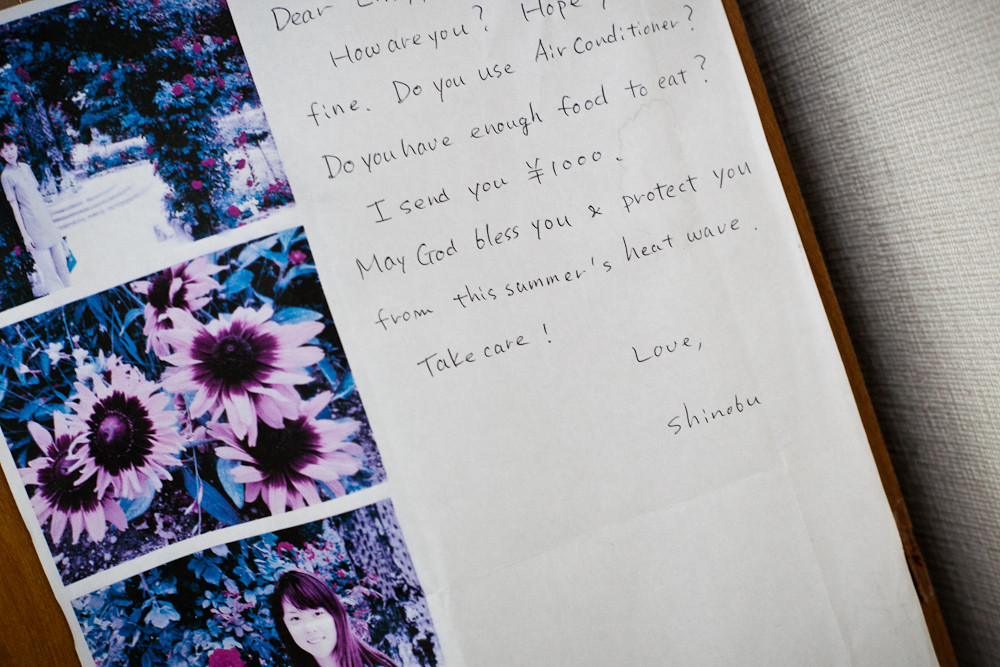 Dear
How are you? Hope
fine. Do you use Air Conditioner?
Do you have enough food to eat?
I send you ¥1000.
May God bless you & protect you
from this summer's heat wave.
Take care!
Love,
shinobu